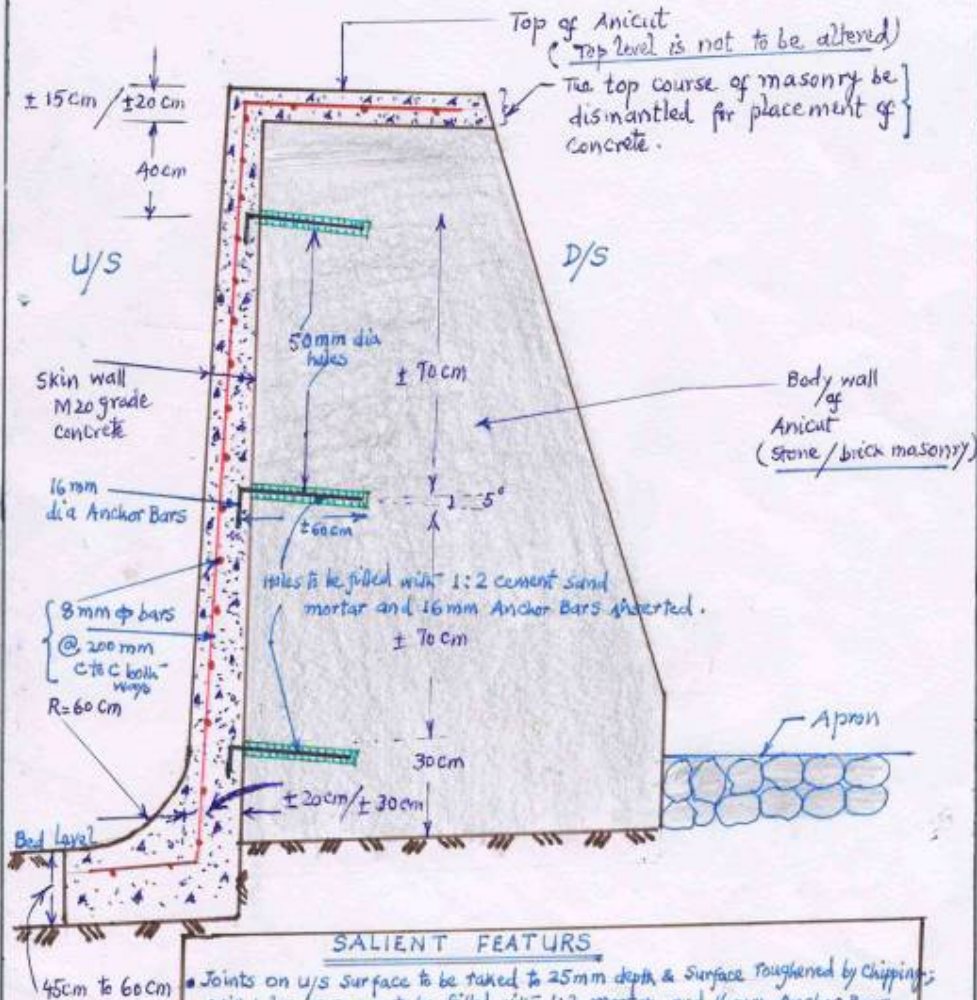 Top of Anicut
(Top level is not to be altered)
± 15cm / ±20cm
The top course of masonry be
dismantled for placement of
concrete.
40cm
U/S
D/S
50mm dia
holes
± 70cm
Skin wall
M20 grade
concrete
Body wall
of
Anicut
(Stone/brick masonry)
16mm
dia Anchor Bars
5°
±60cm
Holes to be filled with 1:2 cement sand
mortar and 16mm Anchor Bars inserted.
8mm ф bars
@ 200mm
C to C both
ways
± 70cm
R=60cm
Apron
30cm
±20cm/±30cm
Bed Level
SALIENT FEATURS
45cm to 60cm
• Joints on U/S Surface to be raked to 25mm depth & Surface roughened by Chipping;